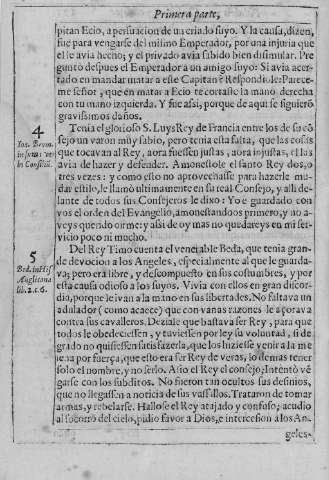 Primera parte,
pitan Ecio, a persuasion de un criado suyo. Y la causa, dizen,
fue para vengarse del mismo Emperador, por una injuria que
el le avia hecho; y el privado avia sabido bien disimular. Pre
gunto despues el Emperador a un amigo suyo: Si avia acer-
tado en mandar matar a este Capitan? Respondiole: Parece-
me señor, que en matar a Ecio te cortaste la mano derecha
con tu mano izquierda. Y fue assi, porque de aqui se siguierõ
gravissimos daños.
4
Tenia el glorioso S. Luys Rey de Francia entre los de su cõ
sejo un varon muy sabio, pero tenia esta falta, que las cosas
que tocavan al Rey, aora fuessen justas, aora injustas, el las
avia de hazer y defender. Amonestole el santo Rey dos, o
tres vezes: y como esto no aprovechasse para hazerle mu-
dar estilo, le llamò ultimamente en su real Consejo, y alli de-
lante de todos sus Consejeros le dixo: Yo e guardado con
vos el orden del Evangelio, amonestandoos primero, y no a-
veys querido oirme: y assi de oy mas no quedareys en mi ser-
vicio poco ni mucho.
Ion. Brom.
in summ. ver
bo Consiliũ.
5
Del Rey Timo cuenta el venerable Beda, que tenia gran-
de devocion a los Angeles, especialmente al que le guarda-
va; pero era libre, y descompuesto en sus costumbres, y por
esta causa odioso a los suyos. Vivia con ellos en gran discor-
dia, porque le ivan a la mano en sus libertades. No faltava un
adulador (como acaece) que con vanas razones le açorava
contra sus cavalleros. Deziale que bastava ser Rey, para que
todos le obedeciessen, y tuviessen por ley su voluntad, si de
grado no quisiessen satisfazerla, que los hiziesse venir a la me
lena por fuerça, que esto era ser Rey de veras, lo demas tener
solo el nombre, y no serlo. Asio el Rey el consejo; Intentò vē
garse con los subditos. No fueron tan ocultos sus desinios,
que no llegassen a noticia de sus vassallos. Trataron de tomar
armas, y rebelarse. Hallose el Rey atajado y confuso; acudio
al socorro del cielo, pidio favor a Dios, e intercession a los An-
Bed. in Hist
Anglicana
lib. 2. c. 6.
geles.